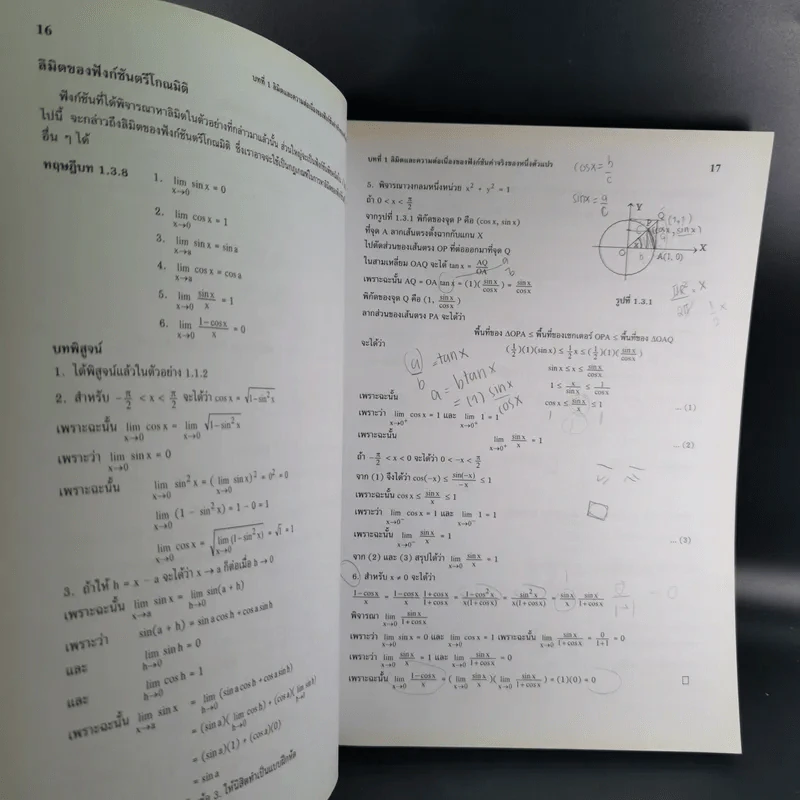 16
บทที่ 1 ลิมิตและความต่อเนื่องของฟังก์ชัน
ลิมิตของฟังก์ชันตรีโกณมิติ
ฟังก์ชันที่ได้พิจารณาหาลิมิตในตัวอย่างที่กล่าวมาแล้วนั้น ส่วนใหญ่จะเป็นฟังก์ชัน
ไปนี้ จะกล่าวถึงลิมิตของฟังก์ชันตรีโกณมิติ ซึ่งเราอาจจะใช้เป็นกฎเกณฑ์ในการหาลิมิต
อื่น ๆ ได้
ทฤษฎีบท 1.3.8
1. lim x→0 sin x = 0
2. lim x→0 cos x = 1
3. lim x→a sin x = sin a
4. lim x→a cos x = cos a
5. lim x→0 sin x / x = 1
6. lim x→0 (1 - cos x) / x = 0
บทพิสูจน์
1. ได้พิสูจน์แล้วในตัวอย่าง 1.1.2
2. สำหรับ -π/2 < x < π/2 จะได้ว่า cos x = √(1 - sin²x)
เพราะฉะนั้น lim x→0 cos x = lim x→0 √(1 - sin²x)
เพราะว่า lim x→0 sin x = 0
เพราะฉะนั้น lim x→0 sin²x = (lim x→0 sin x)² = 0² = 0
lim x→0 (1 - sin²x) = 1 - 0 = 1
lim x→0 cos x = √(lim x→0 (1 - sin²x)) = √1 = 1
3. ถ้าให้ h = x - a จะได้ว่า x → a ก็ต่อเมื่อ h → 0
เพราะฉะนั้น lim x→a sin x = lim h→0 sin(a + h)
เพราะว่า sin(a + h) = sin a cos h + cos a sin h
และ lim h→0 sin h = 0
และ lim h→0 cos h = 1
เพราะฉะนั้น lim x→a sin x = lim h→0 (sin a cos h + cos a sin h)
= (sin a)(lim h→0 cos h) + (cos a)(lim h→0 sin h)
= (sin a)(1) + (cos a)(0)
= sin a
3. ให้นิสิตทำเป็นแบบฝึกหัด
บทที่ 1 ลิมิตและความต่อเนื่องของฟังก์ชันค่าจริงของหนึ่งตัวแปร
17
cos x = b/c
sin x = a/c
5. พิจารณาวงกลมหนึ่งหน่วย x² + y² = 1
ถ้า 0 < x < π/2
จากรูปที่ 1.3.1 พิกัดของจุด P คือ (cos x, sin x)
ที่จุด A ลากเส้นตรงตั้งฉากกับแกน X
ไปตัดส่วนของเส้นตรง OP ที่ต่อออกมาที่จุด Q
ในสามเหลี่ยม OAQ จะได้ tan x = AQ/OA
a
b
เพราะฉะนั้น AQ = OA tan x = (1)(sin x / cos x) = sin x / cos x
พิกัดของจุด Q คือ (1, sin x / cos x)
ลากส่วนของเส้นตรง PA จะได้ว่า
Y
Q
P
O
X
A(1, 0)
รูปที่ 1.3.1
พื้นที่ของ ΔOPA ≤ พื้นที่ของเซกเตอร์ OPA ≤ พื้นที่ของ ΔOAQ
จะได้ว่า (1/2)(1)(sin x) ≤ 1/2 x ≤ (1/2)(1)(sin x / cos x)
sin x ≤ x ≤ sin x / cos x
1 ≤ x / sin x ≤ 1 / cos x
a/b = tan x
a = b tan x
= (1) sin x / cos x
เพราะฉะนั้น cos x ≤ sin x / x ≤ 1 ... (1)
เพราะว่า lim x→0⁺ cos x = 1 และ lim x→0⁺ 1 = 1
เพราะฉะนั้น lim x→0⁺ sin x / x = 1 ... (2)
ถ้า -π/2 < x < 0 จะได้ว่า 0 < -x < π/2
จาก (1) จึงได้ว่า cos(-x) ≤ sin(-x) / -x ≤ 1
เพราะฉะนั้น cos x ≤ sin x / x ≤ 1
เพราะว่า lim x→0⁻ cos x = 1 และ lim x→0⁻ 1 = 1
เพราะฉะนั้น lim x→0⁻ sin x / x = 1 ... (3)
จาก (2) และ (3) สรุปได้ว่า lim x→0 sin x / x = 1
6. สำหรับ x ≠ 0 จะได้ว่า
(1 - cos x) / x = (1 - cos x) / x · (1 + cos x) / (1 + cos x) = (1 - cos²x) / x(1 + cos x) = sin²x / x(1 + cos x) = sin x / x · sin x / (1 + cos x)
พิจารณา lim x→0 sin x / (1 + cos x)
เพราะว่า lim x→0 sin x = 0 และ lim x→0 cos x = 1 เพราะฉะนั้น lim x→0 sin x / (1 + cos x) = 0 / (1+1) = 0
เพราะว่า lim x→0 sin x / x = 1 และ lim x→0 sin x / (1 + cos x) = 0
เพราะฉะนั้น lim x→0 (1 - cos x) / x = (lim x→0 sin x / x)(lim x→0 sin x / (1 + cos x)) = (1)(0) = 0